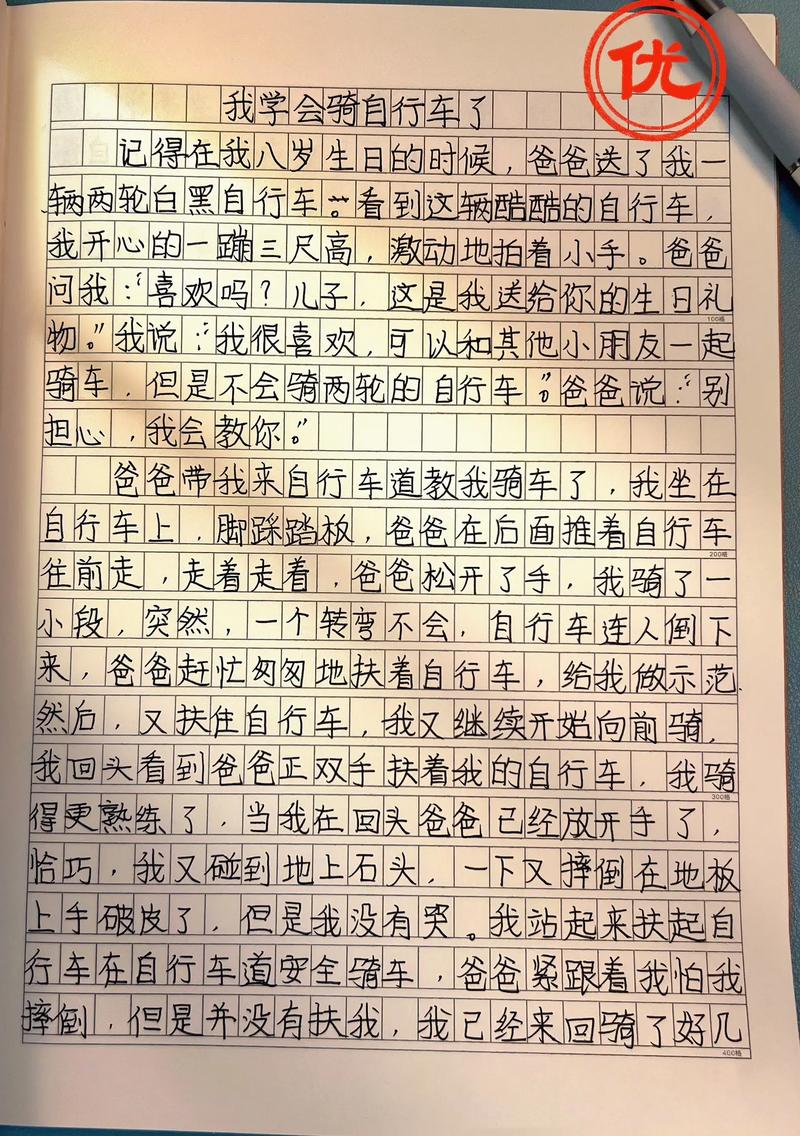 优
我学会骑自行车了
记得在我八岁生日的时候，爸爸送了我一
辆两轮白黑自行车。看到这辆酷酷的自行车，
我开心的一蹦三尺高，激动地拍着小手。爸爸
问我：“喜欢吗？儿子，这是我送给你的生日礼
100格
物。”我说：“我很喜欢，可以和其他小朋友一起
骑车，但是不会骑两轮的自行车。”爸爸说：“别
担心，我会教你。”
爸爸带我来自行车道教我骑车了，我坐在
自行车上，脚踩踏板，爸爸在后面推着自行车
200格
往前走，走着走着，爸爸松开了手，我骑了一
小段，突然，一个转弯不会，自行车连人倒下
来，爸爸赶忙匆匆地扶着自行车，给我做示范.
然后，又扶住自行车，我又继续开始向前骑，
我回头看到爸爸正双手扶着我的自行车，我骑
300格
得更熟练了，当我在回头爸爸已经放开手了，
恰巧，我又碰到地上石头，一下又摔倒在地板
上手破皮了，但是我没有哭。我站起来扶起自
行车在自行车道安全骑车，爸爸紧跟着我怕我
摔倒，但是并没有扶我，我已经来回骑了好几
400格